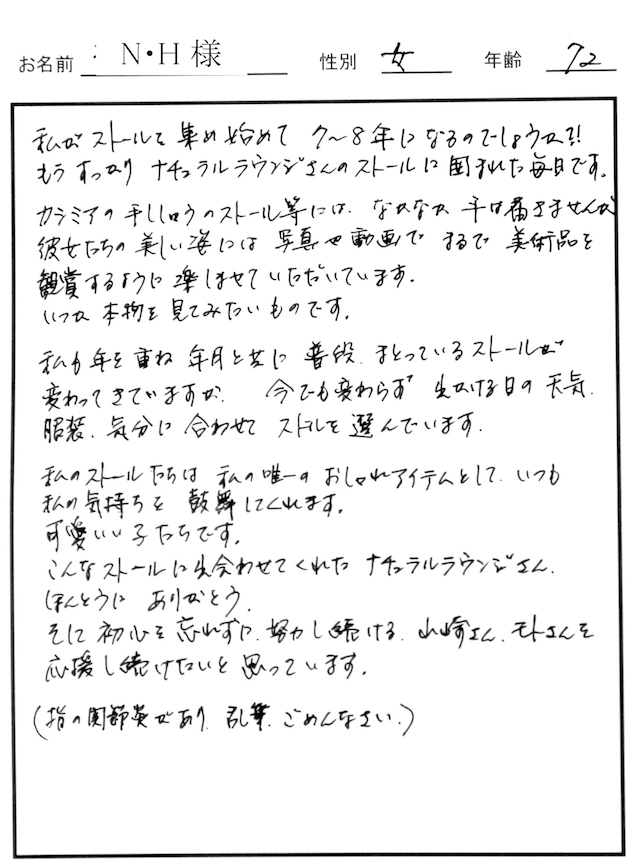 お名前 N・H様 性別 女 年齢 72
私がストールを集め始めて 7〜8年になるのでしょうか?!
もうすっかり ナチュラルラウンジさんのストールに囲まれた毎日です。
カシミアの手ししゅうのストール等には、なかなか手は届きませんが
彼女たちの美しい姿には 写真や動画で まるで 美術品を
観賞するように楽しませていただいています。
いつか 本物を見てみたいものです。
私も年を重ね 年月と共に 普段、まとっているストールが
変わってきていますが、 今でも変わらず 出かける日の天気、
服装、気分に合わせて ストールを選んでいます。
私のストールたちは 私の唯一の おしゃれアイテムとして、いつも
私の気持ちを 鼓舞してくれます。
可愛いい子たちです。
こんなストールに出会わせてくれた ナチュラルラウンジさん、
ほんとうに ありがとう。
そして 初心を忘れずに、努力し続ける、山崎さん、モトさんを
応援し続けたいと思っています。
(指の関節炎があり、乱筆、ごめんなさい。)